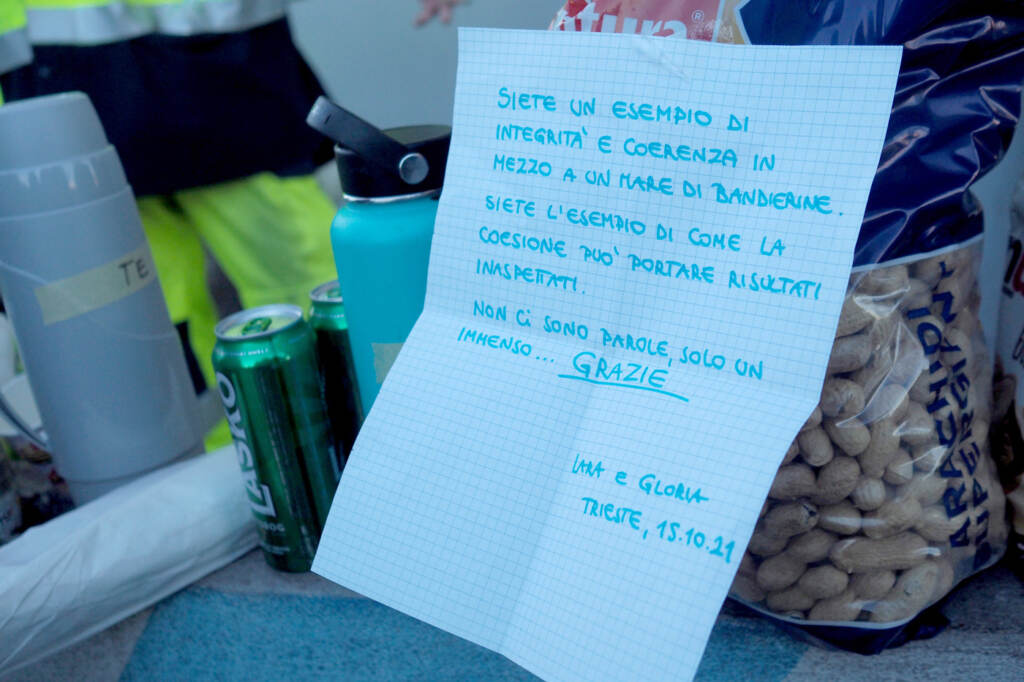 tura®
SIETE UN ESEMPIO DI
INTEGRITÀ E COERENZA IN
MEZZO A UN MARE DI BANDIERINE.
SIETE L'ESEMPIO DI COME LA
COESIONE PUO' PORTARE RISULTATI
INASPETTATI.
NON CI SONO PAROLE, SOLO UN
IMMENSO... GRAZIE
LARA E GLORIA
TRIESTE, 15.10.21
TE
LAŠKO
ARACHIDI
SUPERGIGANTI